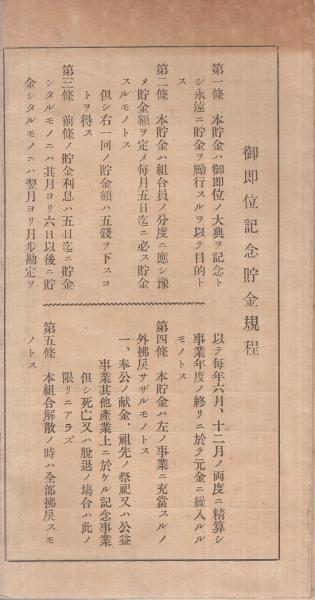 御即位記念貯金規程
第一條 本貯金ハ御即位ノ大典ヲ記念ト
シ永遠ニ貯金ヲ勵行スルヲ以テ目的ト
ス
第二條 本貯金ハ組合員ノ分度ニ應シ豫
メ貯金額ヲ定メ每月五日迄ニ必ス貯金
スルモノトス
但シ右一回ノ貯金額ハ五錢ヲ下スコ
トヲ得ス
第三條 前條ノ貯金利息ハ五日迄ニ貯金
シタルモノニハ其月ヨリ六日以後ニ貯
金シタルモノニハ翌月ヨリ月步勘定ヲ
以テ每年六月、十二月ノ兩度ニ精算シ
事業年度ノ終リニ於テ元金ニ繰入ルル
モノトス
第四條 本貯金ハ左ノ事業ニ充當スルノ
外拂戾サザルモノトス
一、奉公ノ献金、祖先ノ祭祀又ハ公益
事業其他產業上ニ於ケル記念事業
但シ死亡又ハ脫退ノ塲合ハ此ノ
限リニアラズ
第五條 本組合解散ノ時ハ全部拂戾スモ
ノトス